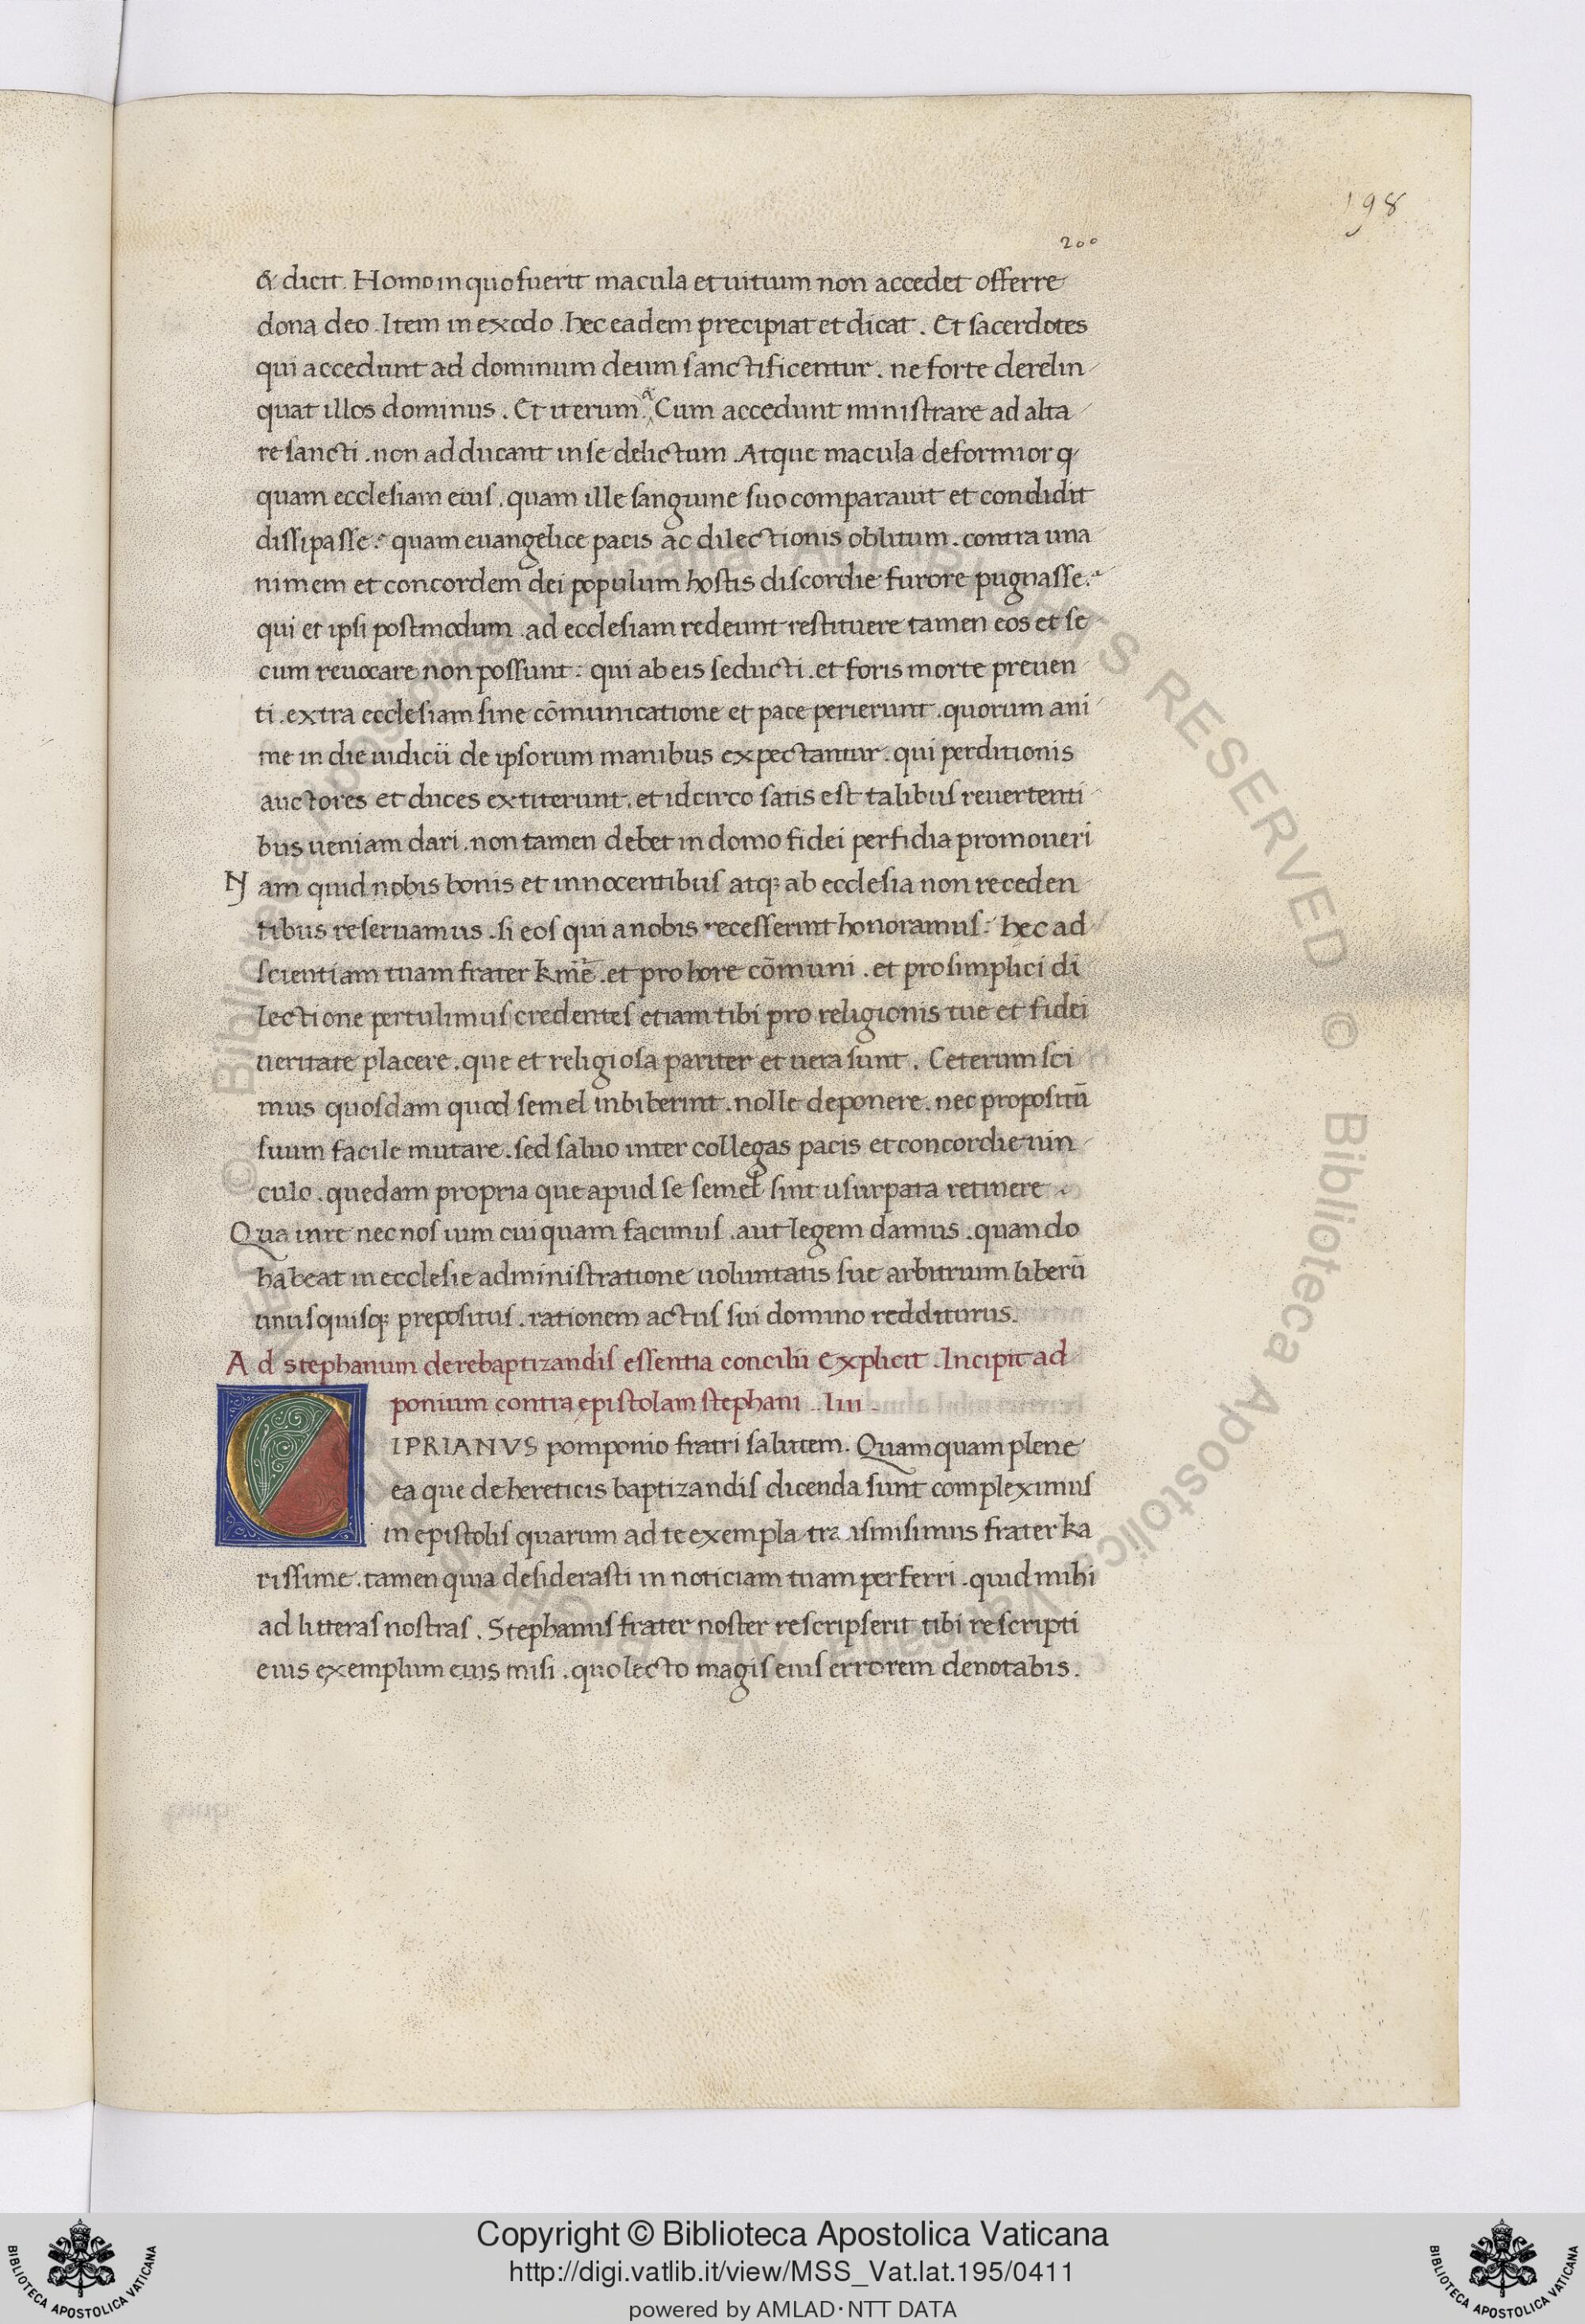 198
200
& dicit. Homo in quo fuerit macula et uitium non accedet offerre
dona deo. Item in exodo. hec eadem precipiat et dicat. Et sacerdotes
qui accedunt ad dominum deum sanctificentur. ne forte derelin
quat illos dominus. Et iterum. Cum accedunt ministrare ad alta
re sancti. non adducant in se delictum. Atque macula deformior q
quam ecclesiam eius. quam ille sanguine suo comparauit et condidit
dissipasse: quam euangelice pacis ac dilectionis oblitum. contra una
nimem et concordem dei populum hostis discordie furore pugnasse.
qui et ipsi postmodum. ad ecclesiam redeunt restituere tamen eos et se
cum reuocare non possunt: qui ab eis seducti. et foris morte preuen
ti. extra ecclesiam sine cōmunicatione et pace perierunt. quorum ani
me in die iudicii de ipsorum manibus expectantur. qui perditionis
auctores et duces extiterunt. et idcirco satis est talibus reuertenti
bus ueniam dari. non tamen debet in domo fidei perfidia promoueri
Nam quid nobis bonis et innocentibus atq; ab ecclesia non receden
tibus reseruamus. si eos qui a nobis recesserint honoramus: hec ad
scientiam tuam frater kmē. et pro hore cōmuni. et pro simplici di
lectione pertulimus credentes etiam tibi pro religionis tue et fidei
ueritate placere. que et religiosa pariter et uera sunt. Ceterum sci
mus quosdam quod semel inbiberint. nolle deponere. nec propositū
suum facile mutare. sed saluo inter collegas pacis et concordie uin
culo. quedam propria que apud se semel sint usurpata retinere
Qua in re nec nos uim cuiquam facimus. aut legem damus. quando
habeat in ecclesie administratione uoluntatis sue arbitrium liberū
unusquisq; prepositus. rationem actus sui domino redditurus.
Ad stephanum de rebaptizandis essentia concilii Explicit. Incipit ad
ponium contra epistolam stephani. .Iiii.
CIPRIANVS pomponio fratri salutem. Quamquam plene
ea que de hereticis baptizandis dicenda sunt compleximus
in epistolis quarum ad te exempla transmisimus frater ka
rissime. tamen quia desiderasti in noticiam tuam perferri. quid mihi
ad litteras nostras. Stephanus frater noster rescripserit tibi rescripti
eius exemplum eius misi. quo lecto magis eius errorem denotabis.
Copyright © Biblioteca Apostolica Vaticana
http://digi.vatlib.it/view/MSS_Vat.lat.195/0411
powered by AMLAD·NTT DATA
BIBLIOTECA APOSTOLICA VATICANA
BIBLIOTECA APOSTOLICA VATICANA